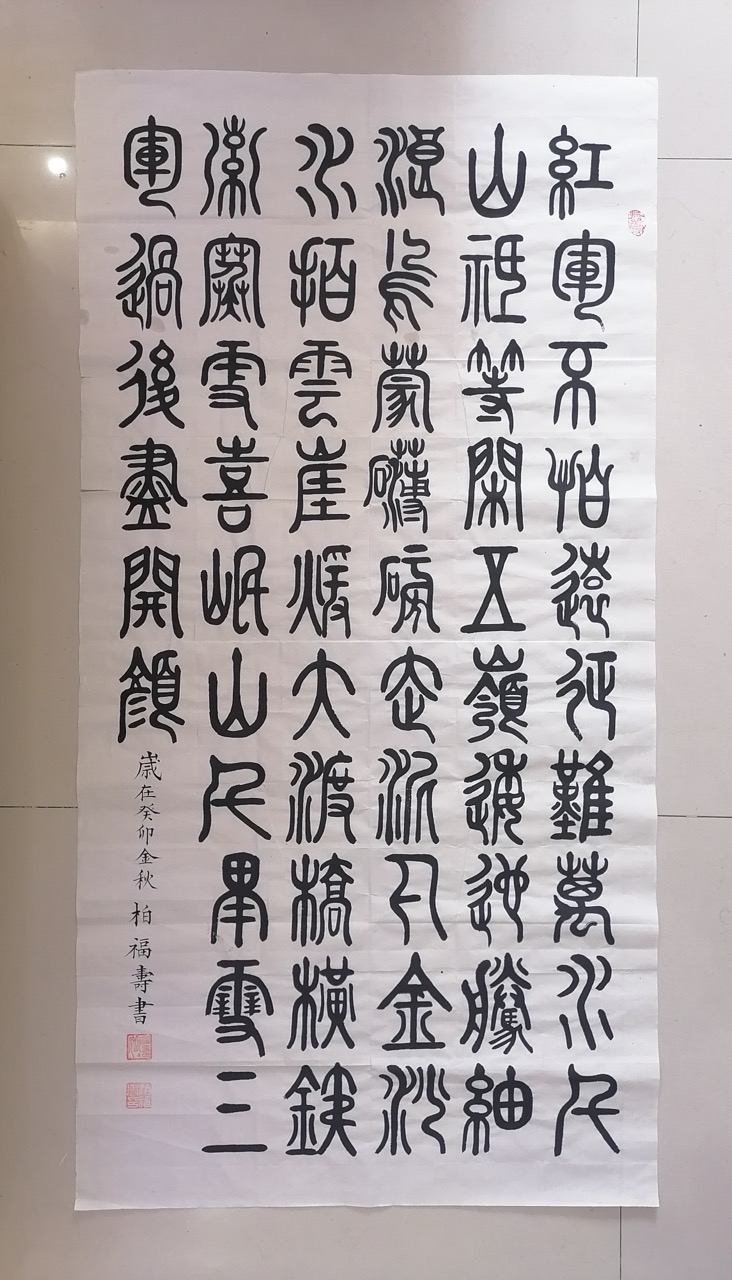 紅軍不怕遠征難萬水千
山祇等閑五嶺逶迤騰細
浪烏蒙礴磅走泥丸金沙
水拍雲崖煖大渡橋橫鐵
索寒更喜岷山千里雪三
軍過後盡開顏
歲在癸卯金秋柏福壽書